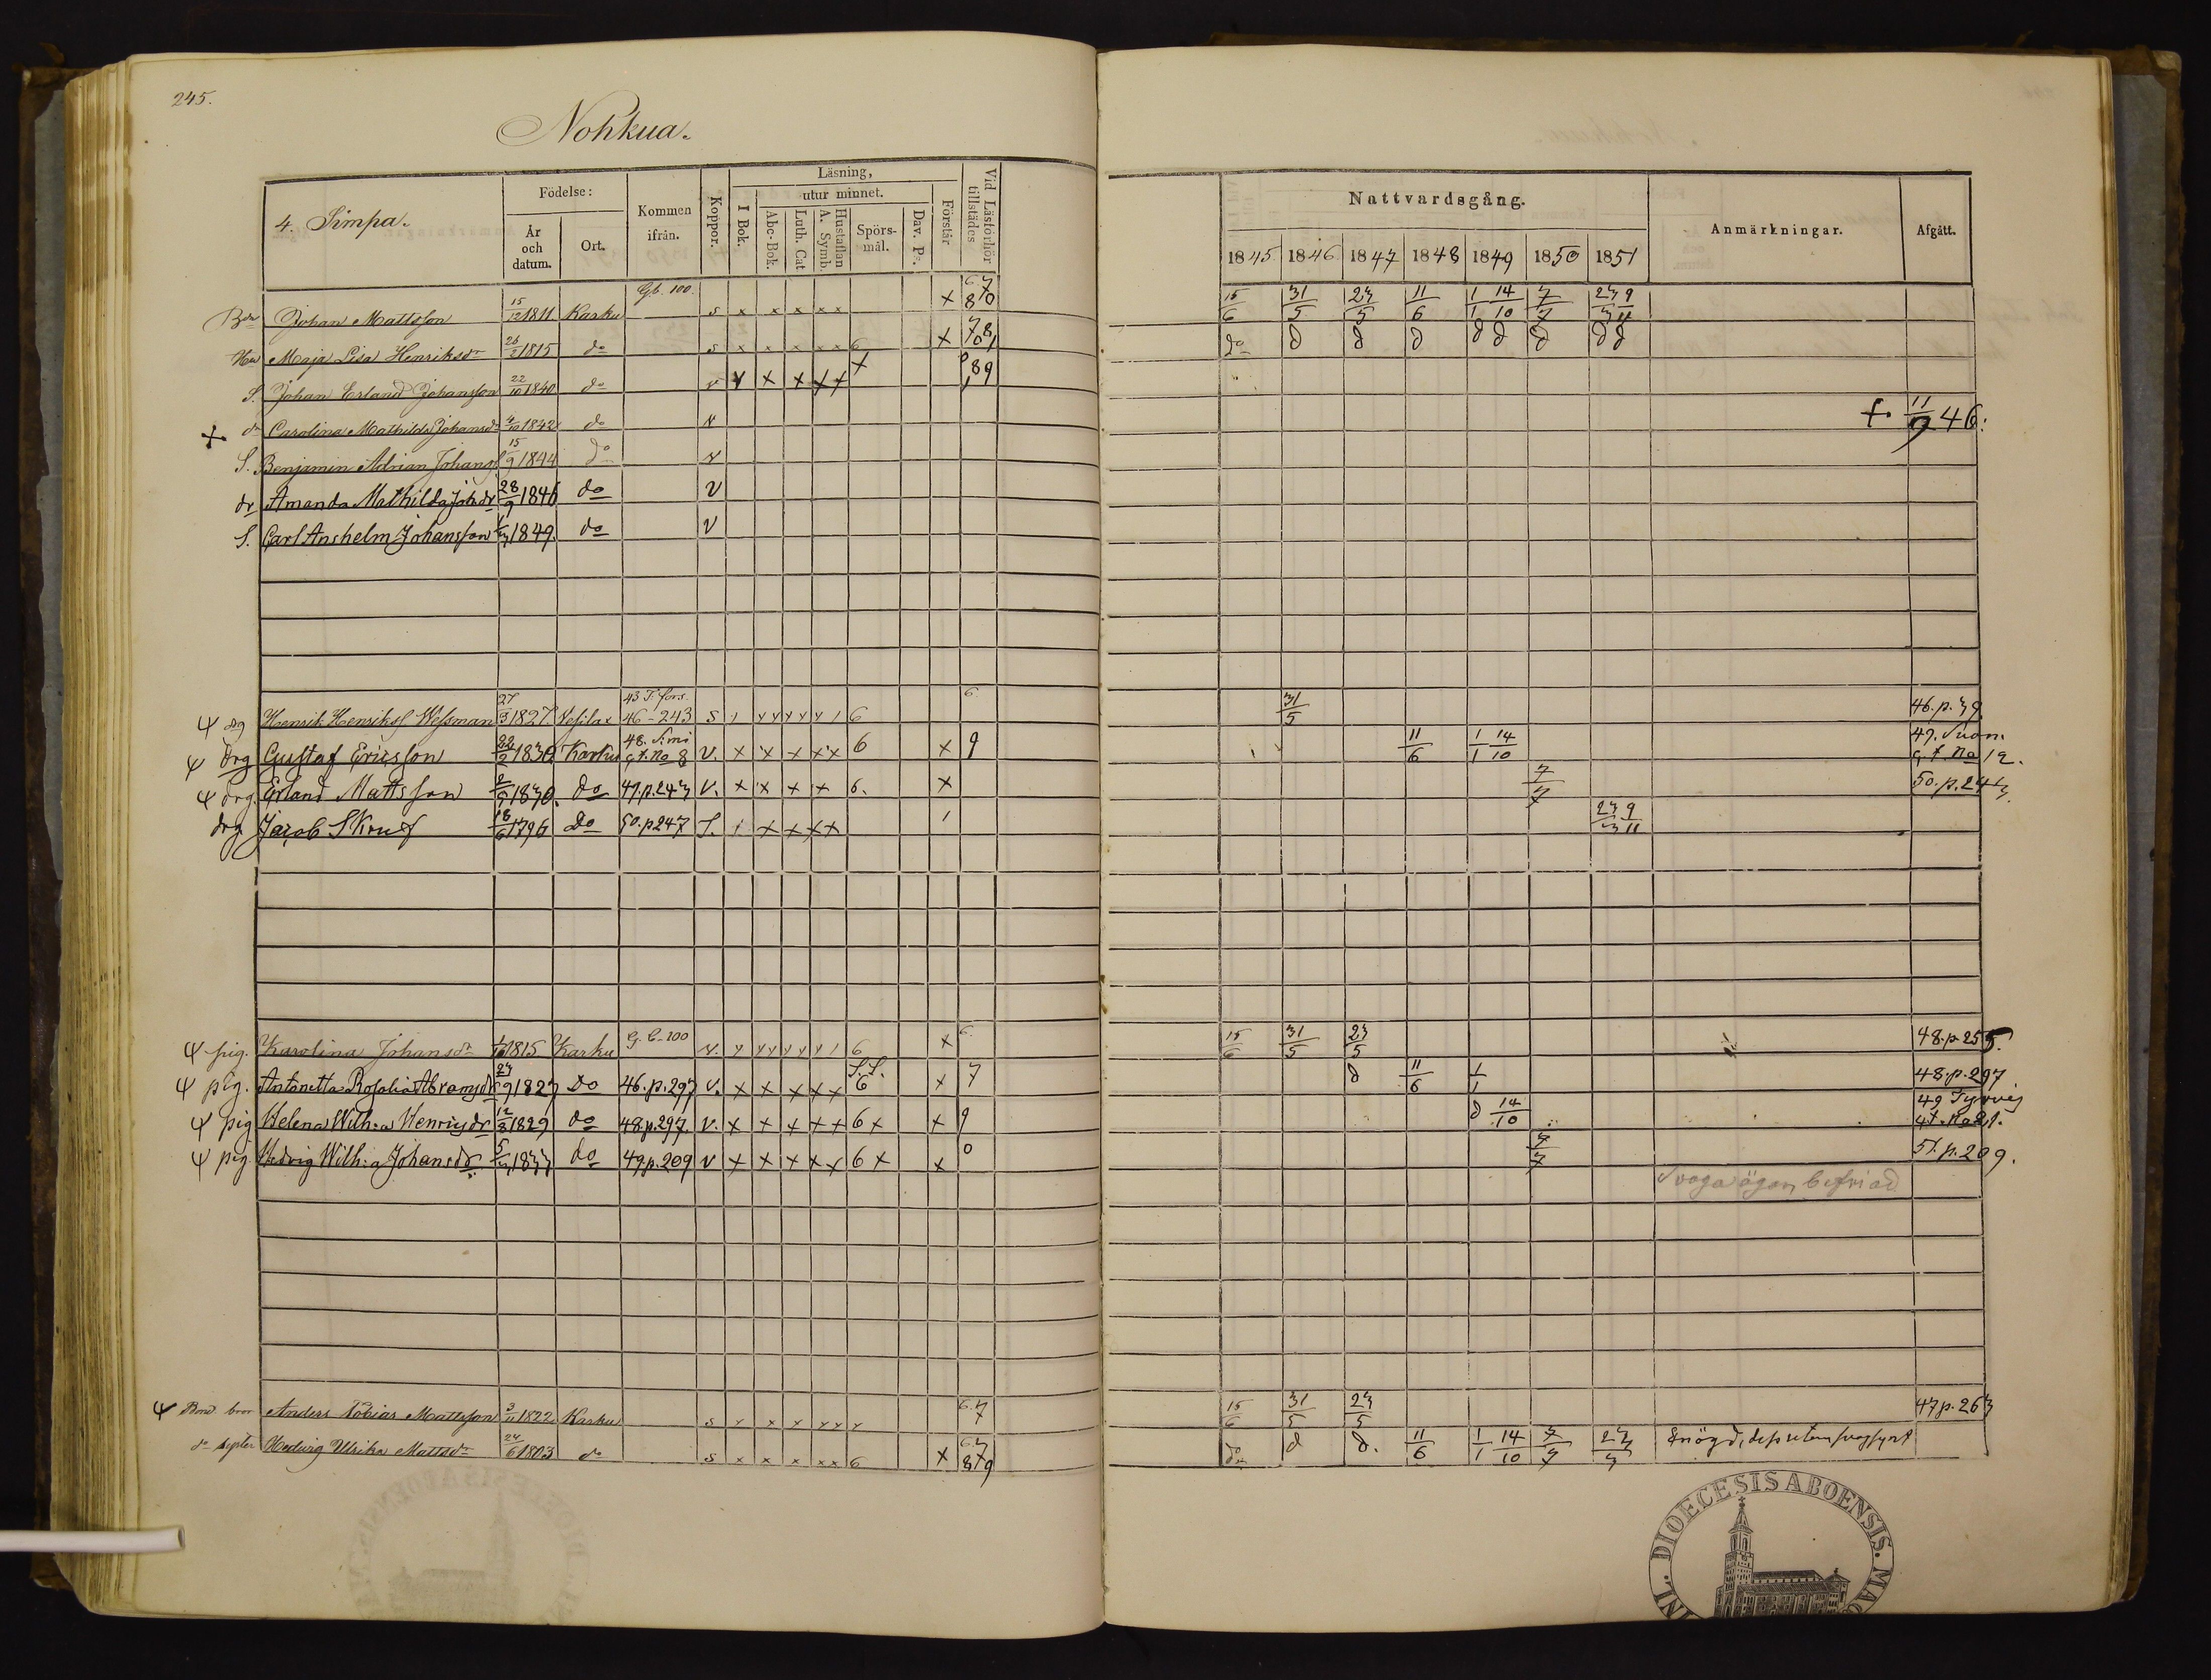 245.
Nohkua.
4. Simpa.
Födelse:
År och datum.
Ort.
Kommen ifrån.
Koppor.
Läsning,
I Bok.
utur minnet.
Abc-Bok.
Luth. Cat
Hustaflan A. Symb.
Spörs-mål.
Dav. Ps.
Förstår
Vid Läsförhör tillstädes
Nattvardsgång.
1845 1846 1847 1848 1849 1850 1851
Anmärkningar.
Afgått.
Bde Johan Mattsson 15/12 1811 Karku G.b. 100. s x x x x x x 6 7 8 70 15/6 31/5 23/5 11/6 1/1 14/10 7/7 23/3 9/11
Hu Maja Lisa Henriksdr 26/2 1815 do s x x x x x 6 x 7 8 do d d d d d d d d
S. Johan Erland Johansson 22/10 1840 do v x x x x x 89
+ dr Carolina Mathilda Johansdr 4/10 1842 do v +. 11/9 46.
S. Benjamin Adrian Johanss 15/9 1844 do v
dr Amanda Mathilda Johdr 28/9 1846 do v
S. Carl Anshelm Johansson 1849. do v
Ψ drg Henrik Henrikss Wessman 27/3 1827. Vesilax 43 T:fors. 46-243 s 6 6 31/5 46.p.39
Ψ drg Gustaf Ericsson 22/2 1830 Karku 48. Simi g.t. No 8 v. x x x x x 6 x 9 11/6 1/1 14/10 47. Suon. g.t. No 12.
Ψ drg. Erland Mattsson 2/9 1830. do 47.p.243 v. x x x x 6. x 7/7 50.p.243.
drg Jacob Skruf 18/6 1796 do 50.p247 S. x x x x 23/3 9/11
Ψ pig. Karolina Johansdr 1815 Karku G.b-100 v. 6 x 6 15/6 31/5 23/5 48.p.255.
Ψ pig. Antonetta Rosalia Abramsdr 23/9 1827 do 46.p.297 v. x x x x x S.S. 6 x 7 d 11/6 1/1 48.p.297
Ψ pig Helena Wilh:a Henricsdr 12/8 1829 do 48.p.297. v. x x x x x 6 x x 9 d 14/10 49 Tyrvis at. No 21.
Ψ pig. Hedvig Wilh:a Johansdr 5/3 1833 do 49p.209 v x x x x x 6 x x 0 7/7 51.p.209.
Svaga ögon, befriad
Ψ Bond. bror Anders Tobias Mattsson 3/11 1822 Karku s x x x x x x 6.7 7 15/6 31/5 23/5 47p.263
do syster Hedvig Ulrika Mattsdr 24/6 1803 do s x x x x x 6 x 6.7 879 do d d. 11/6 1/1 14/10 7/7 23/3
DIOECESIS ABOENSIS. MAG
INL.